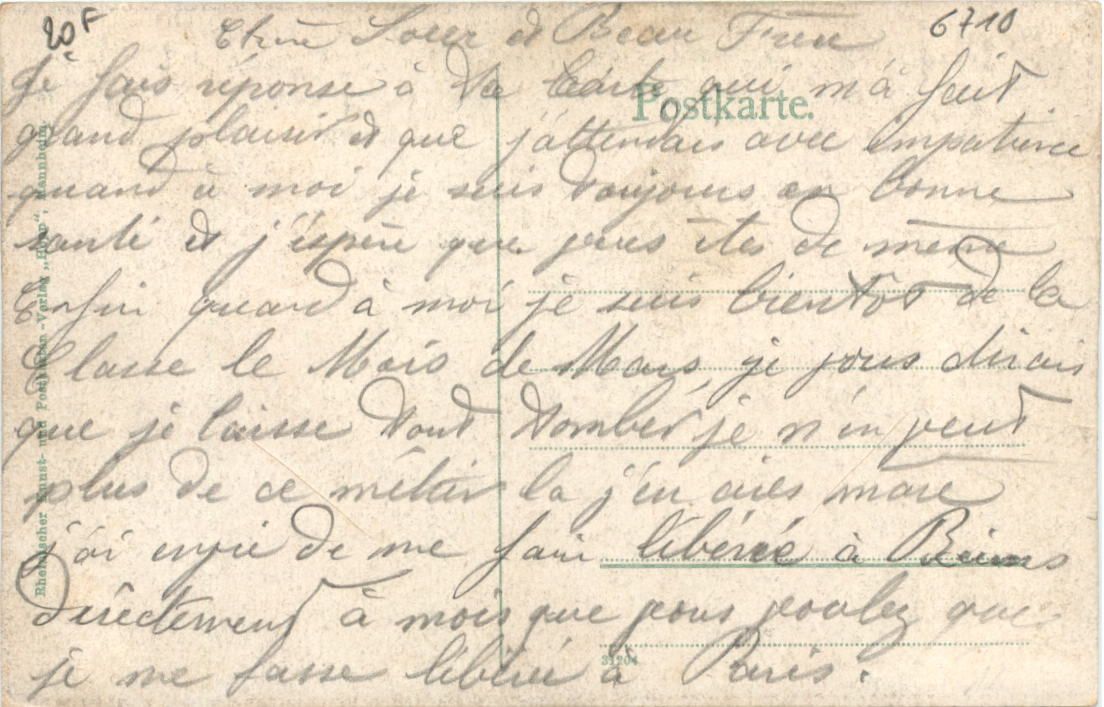 20F
6710
Chère Soeur et Beau Frere
Je fais réponse à ta Carte qui m'a fait
Postkarte.
grand plaisir et que j'attendais avec impatience
quand à moi je suis toujours en bonne
santé et j'espère que vous êtes de même
Enfin quand à moi je suis bientot de la
Classe le Mois de Mars, je vous dirais
que je laisse tout tomber je n'en peut
plus de ce métier la j'en aies mare
j'ai envie de me fair libérée à Reims
dirèctement à mois que vous voulez que
je me fasse libérée à Paris.
31204
Rheinischer Kunst- und Postkarten-Verlag, Mannheim.